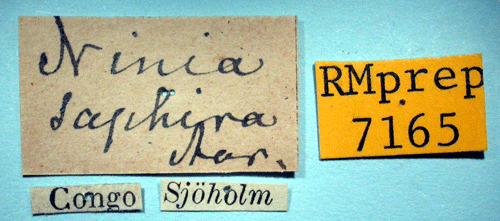 Ninia
saphira
Aur.
RMprep
7165
Congo
Sjöholm